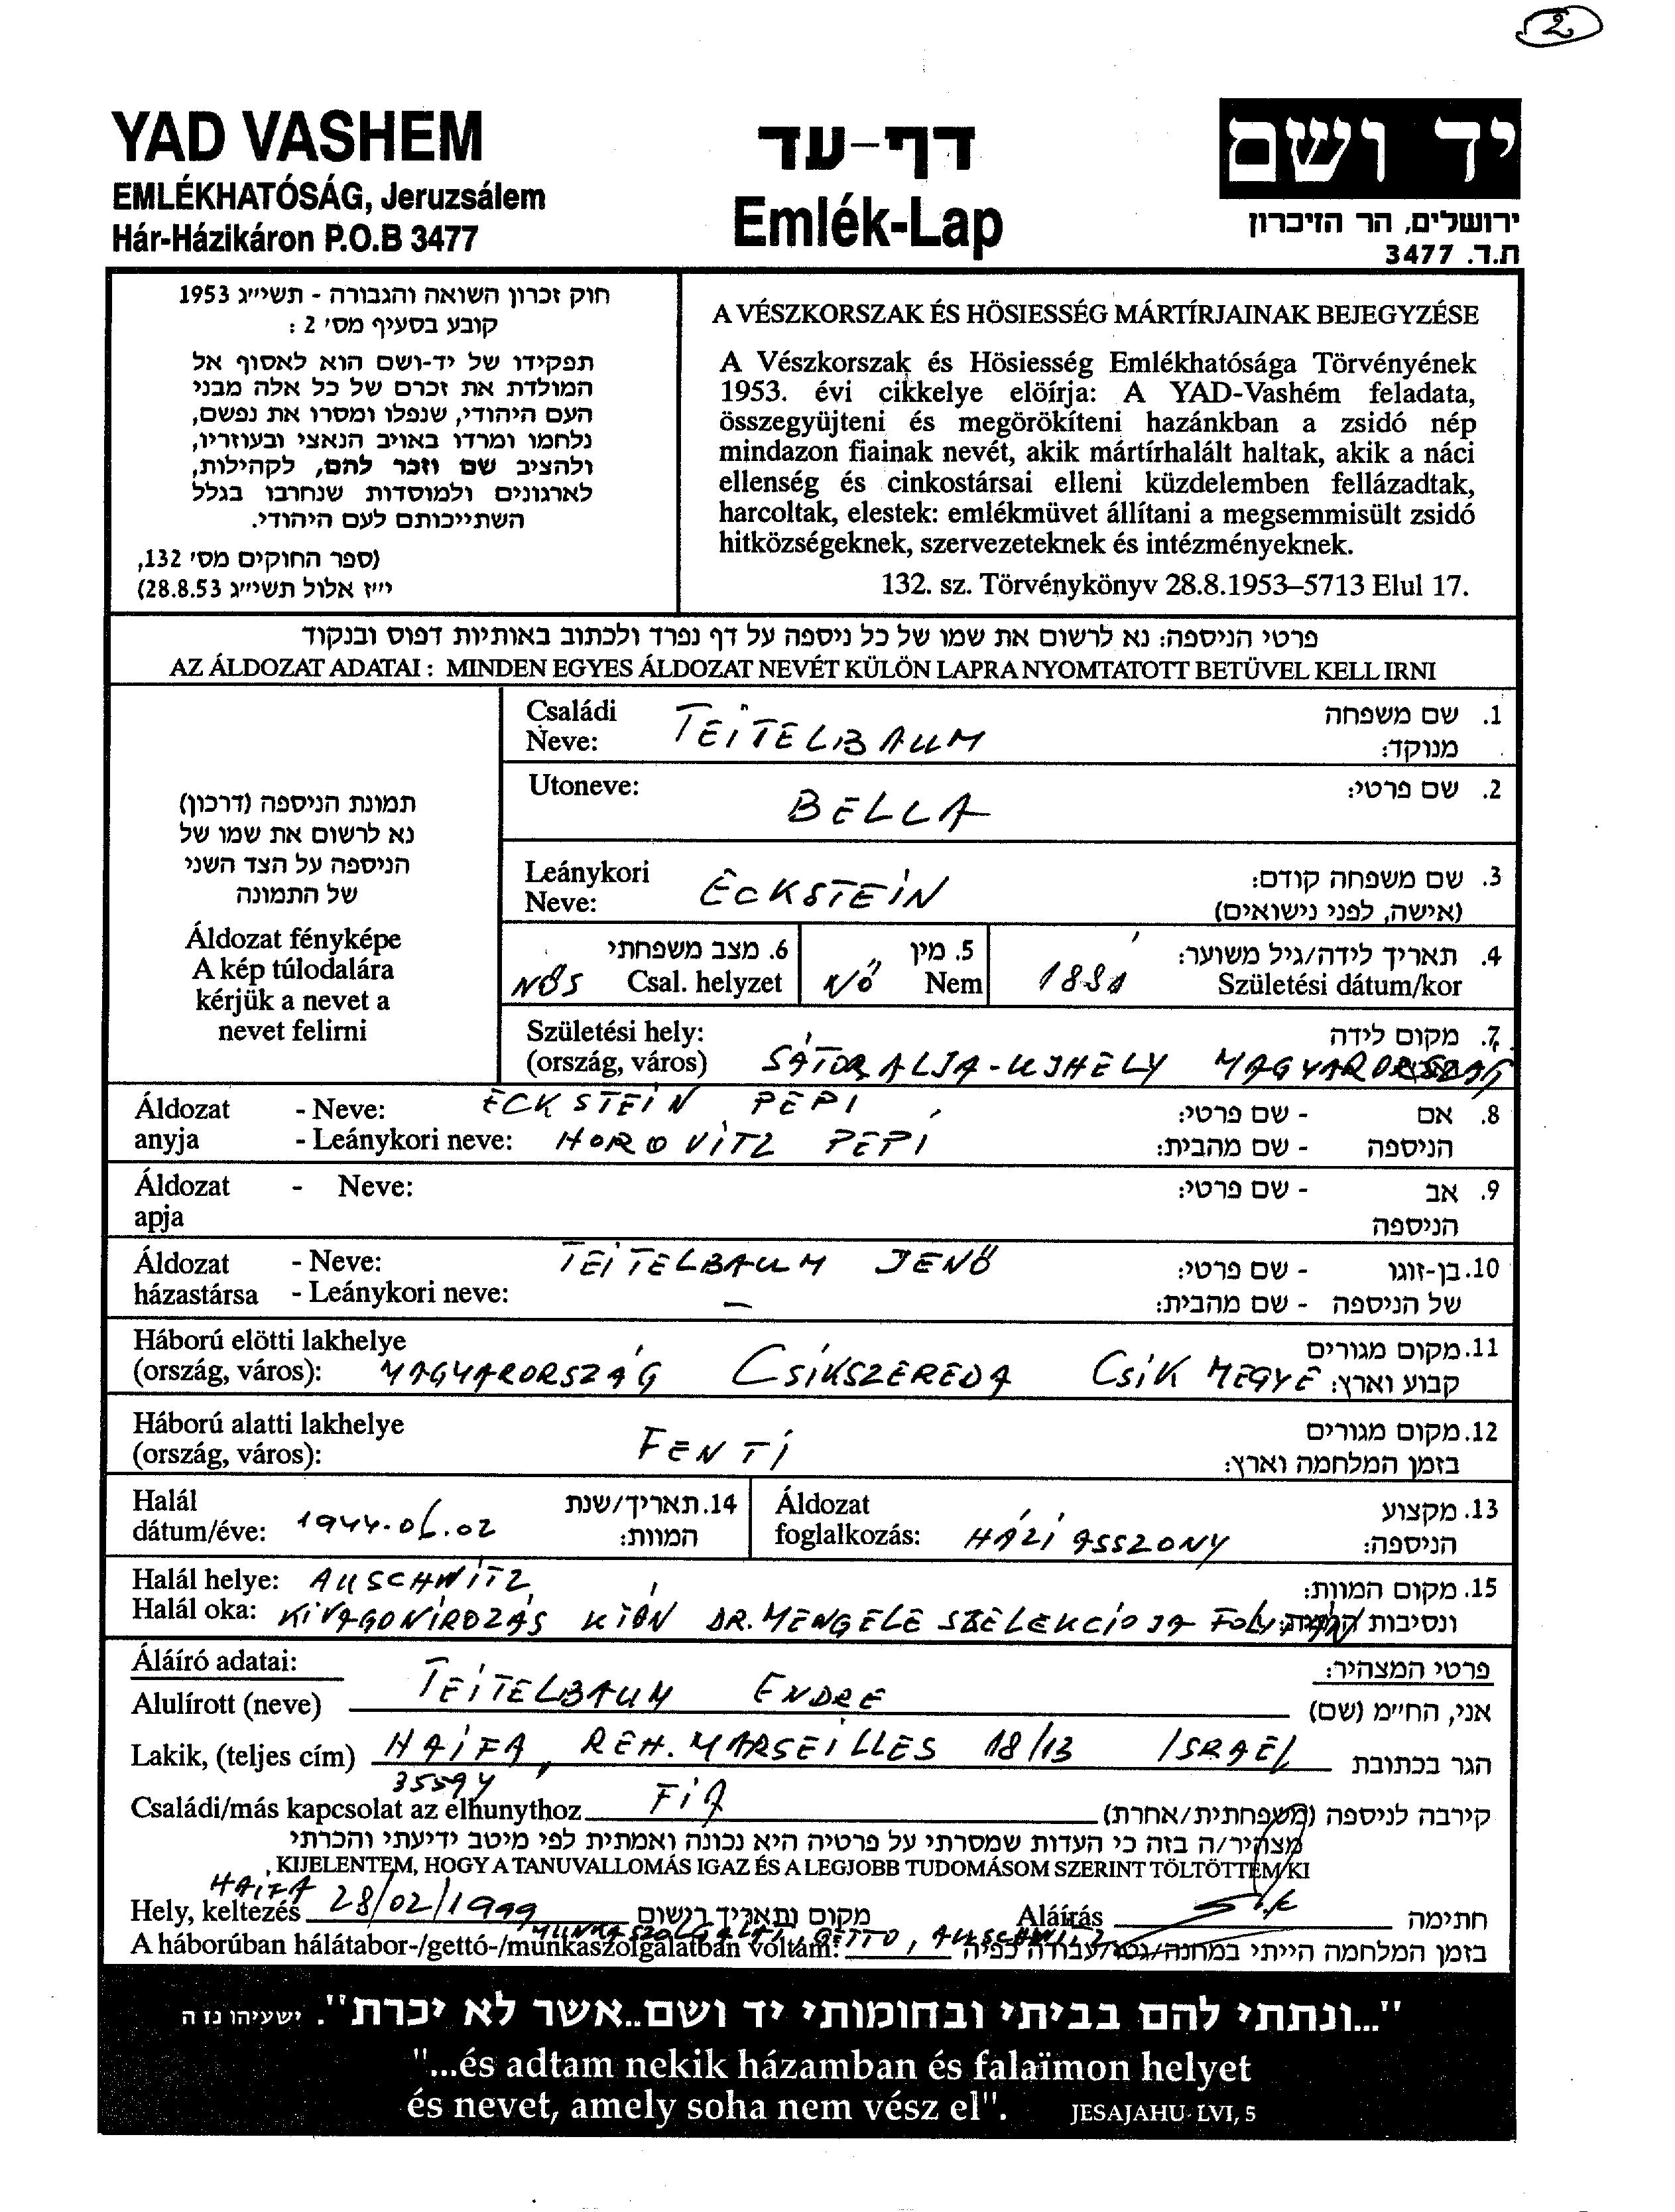 2
YAD VASHEM
EMLÉKHATÓSÁG, Jeruzsálem
Hár-Házikáron P.O.B 3477
דף-עד
Emlék-Lap
יד ושם
ירושלים, הר הזיכרון
ת.ד. 3477
חוק זכרון השואה והגבורה - תשי״ג 1953
קובע בסעיף מס׳ 2 :
תפקידו של יד-ושם הוא לאסוף אל
המולדת את זכרם של כל אלה מבני
העם היהודי, שנפלו ומסרו את נפשם,
נלחמו ומרדו באויב הנאצי ובעוזריו,
ולהציב שם וזכר להם, לקהילות,
לארגונים ולמוסדות שנחרבו בגלל
השתייכותם לעם היהודי.
(ספר החוקים מס׳ 132,
י״ז אלול תשי״ג 28.8.53)
A VÉSZKORSZAK ÉS HÖSIESSÉG MÁRTÍRJAINAK BEJEGYZÉSE
A Vészkorszak és Hösiesség Emlékhatósága Törvényének
1953. évi cikkelye elöírja: A YAD-Vashém feladata,
összegyüjteni és megörökíteni hazánkban a zsidó nép
mindazon fiainak nevét, akik mártírhalált haltak, akik a náci
ellenség és cinkostársai elleni küzdelemben fellázadtak,
harcoltak, elestek: emlékmüvet állítani a megsemmisült zsidó
hitközségeknek, szervezeteknek és intézményeknek.
132. sz. Törvénykönyv 28.8.1953–5713 Elul 17.
פרטי הניספה: נא לרשום את שמו של כל ניספה על דף נפרד ולכתוב באותיות דפוס ובנקוד
AZ ÁLDOZAT ADATAI : MINDEN EGYES ÁLDOZAT NEVÉT KÜLÖN LAPRA NYOMTATOTT BETÜVEL KELL IRNI
תמונת הניספה (דרכון)
נא לרשום את שמו של
הניספה על הצד השני
של התמונה
Áldozat fényképe
A kép túlodalára
kérjük a nevet a
nevet felirni
Családi Neve: TEITELBAUM 1. שם משפחה מנוקד:
Utoneve: BELLA 2. שם פרטי:
Leánykori Neve: ECKSTEIN 3. שם משפחה קודם: (אישה, לפני נישואים)
NŐS Csal. helyzet 6. מצב משפחתי
NŐ Nem 5. מין
Születési dátum/kor 4. תאריך לידה/גיל משוער:
Születési hely: (ország, város) SÁTORALJA-UJHELY MAGYARORSZÁG 7. מקום לידה
Áldozat anyja - Neve: ECKSTEIN PEPI 8. אם הניספה - שם פרטי:
- Leánykori neve: HOROVITZ PEPI - שם מהבית:
Áldozat apja - Neve: 9. אב הניספה - שם פרטי:
Áldozat házastársa - Neve: TEITELBAUM JENŐ 10. בן-זוגו של הניספה - שם פרטי:
- Leánykori neve: — - שם מהבית:
Háború elötti lakhelye (ország, város): MAGYARORSZÁG CSIKSZEREDA CSIK MEGYE 11. מקום מגורים קבוע וארץ:
Háború alatti lakhelye (ország, város): FENTI 12. מקום מגורים בזמן המלחמה וארץ:
Halál dátum/éve: 1944.06.02 14. תאריך/שנת המוות:
Áldozat foglalkozás: HÁZIASSZONY 13. מקצוע הניספה:
Halál helye: AUSCHWITZ 15. מקום המוות:
Halál oka: KIVAGONIROZÁS KÖN DR. MENGELE SZELEKCIOJA FOLYTÁN ונסיבות המוות:
Áláíró adatai: פרטי המצהיר:
Alulírott (neve) TEITELBAUM ENDRE אני, החי״מ (שם)
Lakik, (teljes cím) HAIFA, REH. MARSEILLES 18/13 ISRAEL הגר בכתובת
35594
Családi/más kapcsolat az elhunythoz FIA קירבה לניספה (משפחתית/אחרת)
מצהיר/ה בזה כי העדות שמסרתי על פרטיה היא נכונה ואמתית לפי מיטב ידיעתי והכרתי
KIJELENTEM, HOGY A TANUVALLOMÁS IGAZ ÉS A LEGJOBB TUDOMÁSOM SZERINT TÖLTÖTTEM KI
Hely, keltezés HAIFA 28/02/1999 מקום ותאריך רישום Aláirás חתימה
A háborúban hálátabor-/gettó-/munkaszolgálatban voltam: MUNKASZOLGÁLAT, GETTO, AUSCHWITZ בזמן המלחמה הייתי במחנה/גטו/עבודה כפיה
"...ונתתי להם בביתי ובחומותי יד ושם..אשר לא יכרת". ישעיהו נז ה
"...és adtam nekik házamban és falaïmon helyet
és nevet, amely soha nem vész el". JESAJAHU LVI, 5